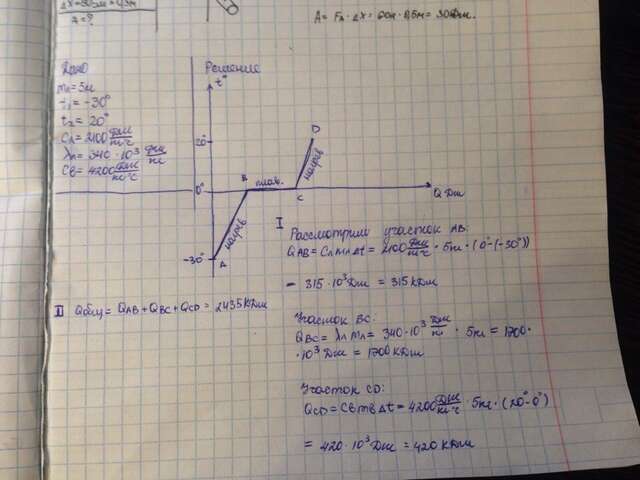 Δx=50см=0,5м
A=?
A = Fл · Δx = 60н · 0,5м = 30Дж.
Дано
mл = 5кг
t₁ = -30°
t₂ = 20°
Cл = 2100 Дж/кг°С
λл = 340 · 10³ Дж/кг
Cв = 4200 Дж/кг°С
Решение
t°
20°
0°
-30°
A
B
C
D
нагрев
плав.
нагрев
Q Дж
I
Рассмотрим участок AB:
QAB = Cл mл Δt = 2100 Дж/кг°С · 5кг · (0°-(-30°))
= 315 · 10³ Дж = 315 кДж
II Qобщ = QAB + QBC + QCD = 2435 кДж
Участок BC:
QBC = λл mл = 340 · 10³ Дж/кг · 5кг = 1700 ·
· 10³ Дж = 1700 кДж
Участок CD:
QCD = Cв mв Δt = 4200 Дж/кг°С · 5кг · (20°-0°)
= 420 · 10³ Дж = 420 кДж